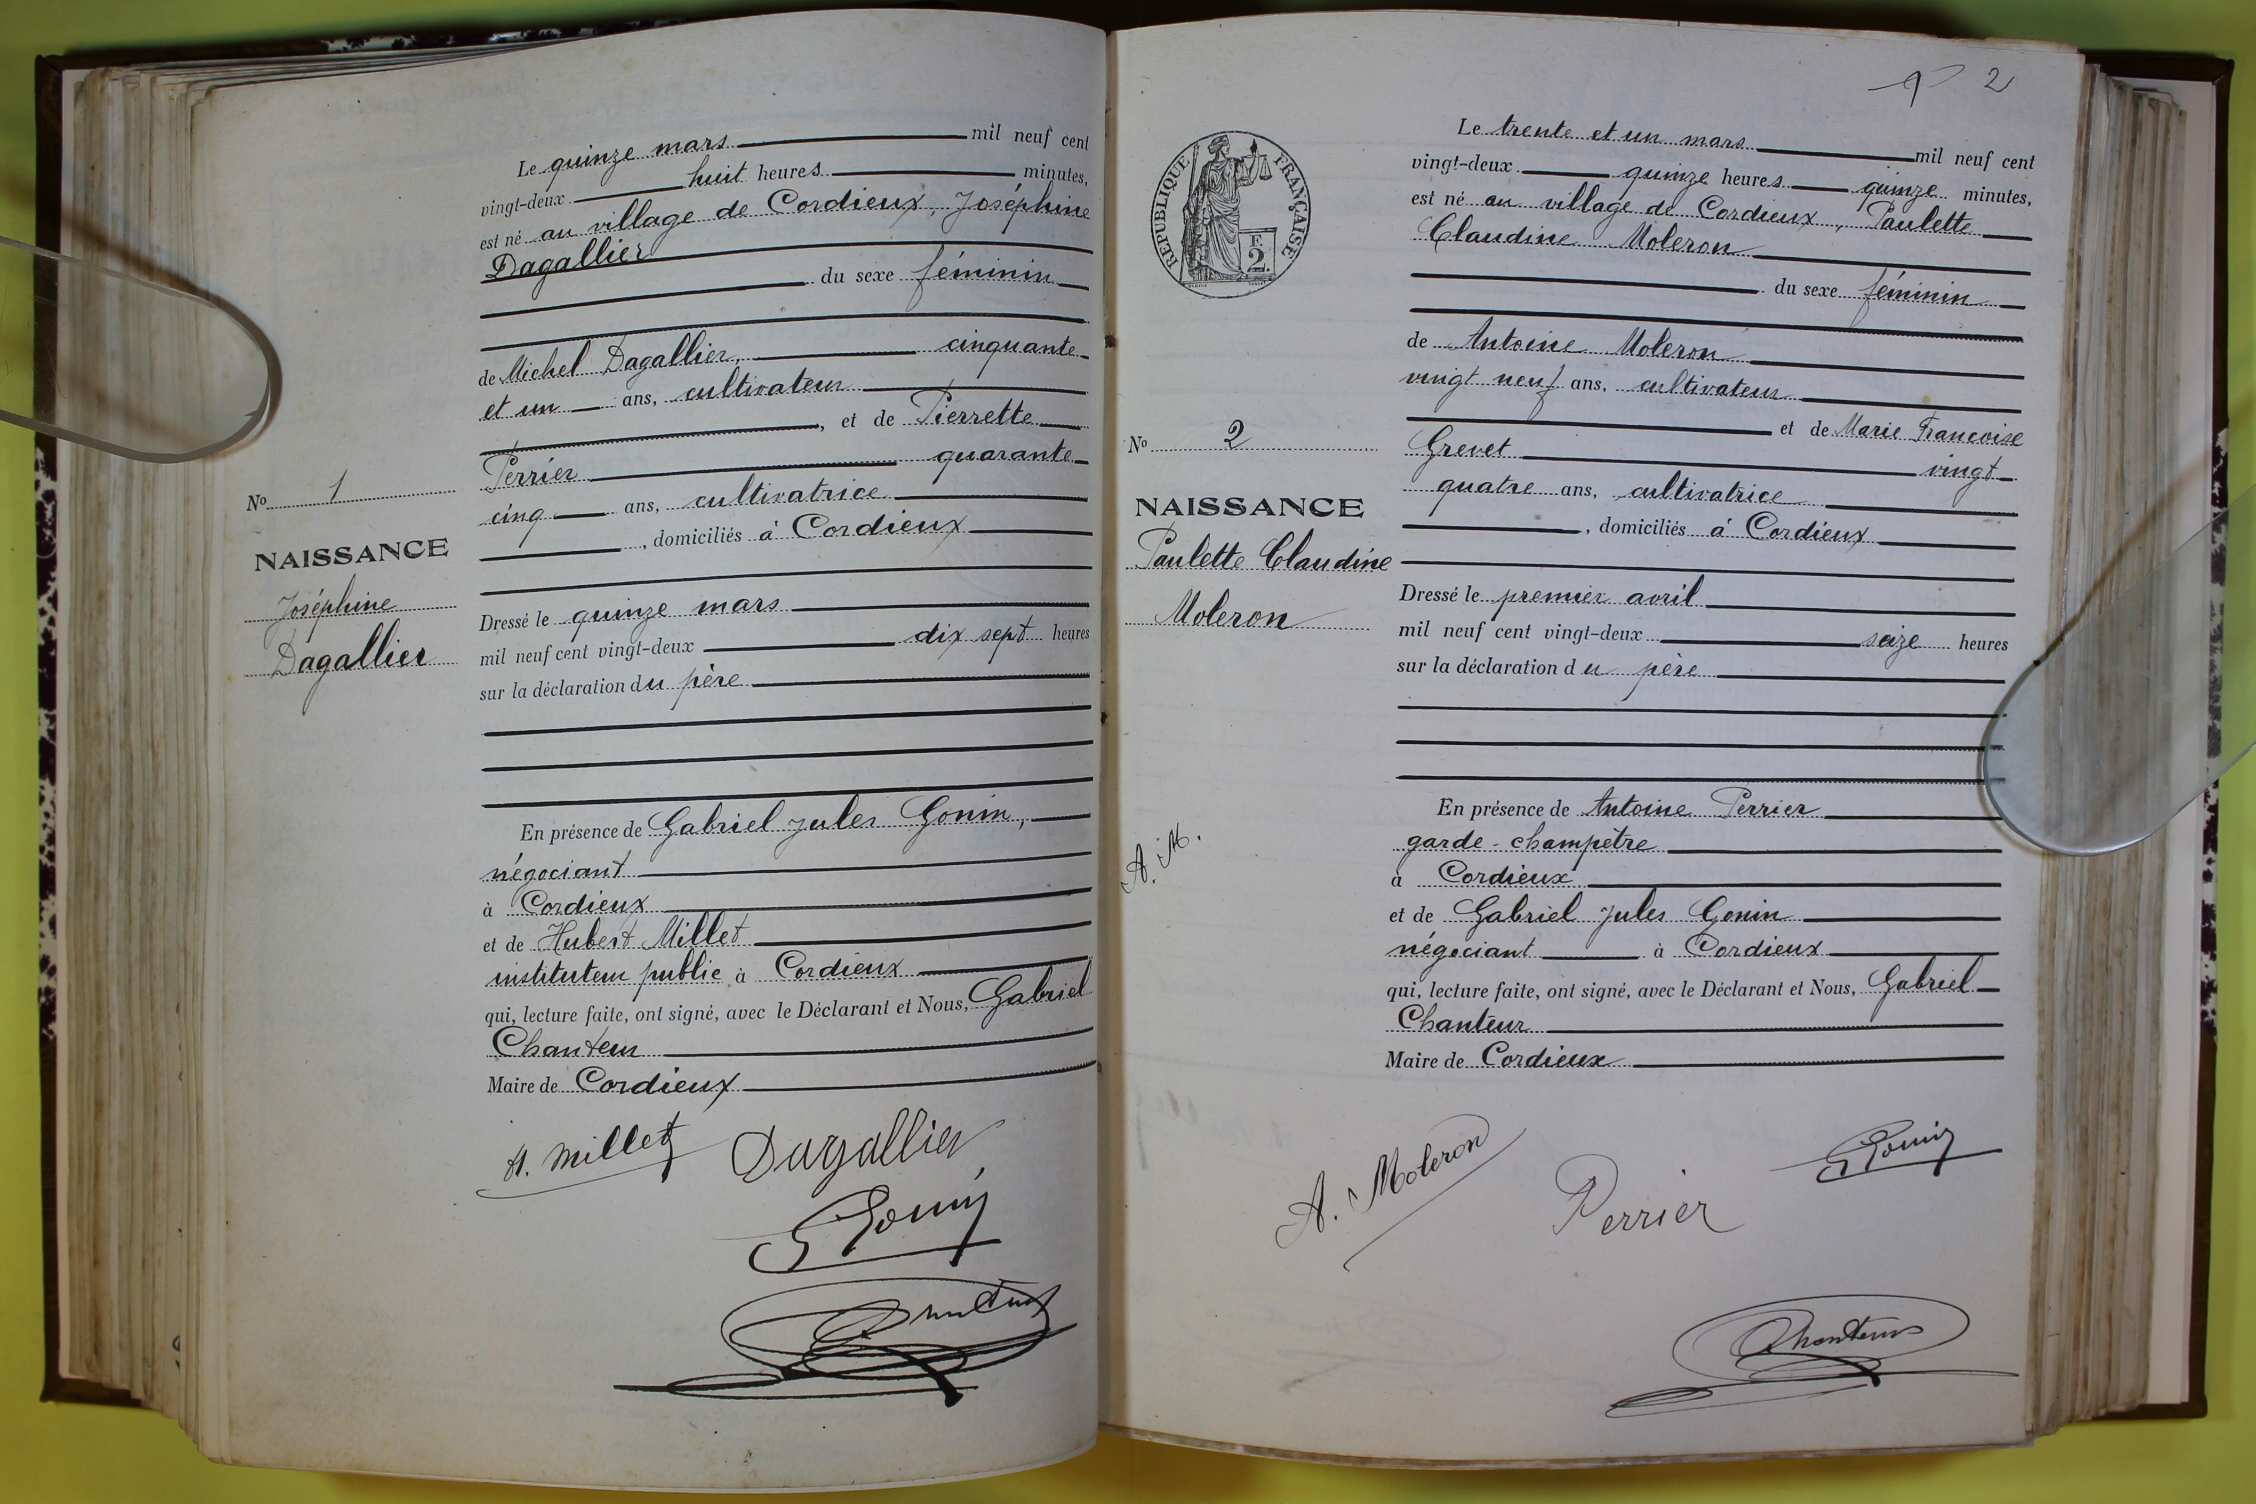 Le quinze mars mil neuf cent
vingt-deux huit heures minutes,
est né au village de Cordieux, Joséphine
Dagallier
du sexe féminin
de Michel Dagallier, cinquante
et un ans, cultivateur
, et de Pierrette
Perrier quarante
cinq ans, cultivatrice
, domiciliés à Cordieux
No 1
NAISSANCE
Joséphine
Dagallier
Dressé le quinze mars
mil neuf cent vingt-deux dix sept heures
sur la déclaration du père
En présence de Gabriel Jules Gonin,
négociant
à Cordieux
et de Hubert Millet
instituteur public à Cordieux
qui, lecture faite, ont signé, avec le Déclarant et Nous, Gabriel
Chanteur
Maire de Cordieux
H. Millet Dagallier
G Gonin
Chanteur
2
REPUBLIQUE FRANÇAISE
2
Le trente et un mars mil neuf cent
vingt-deux quinze heures quinze minutes,
est né au village de Cordieux, Paulette
Claudine Moleron
du sexe féminin
de Antoine Moleron
vingt neuf ans, cultivateur
et de Marie Françoise
Grevet vingt
quatre ans, cultivatrice
, domiciliés à Cordieux
No 2
NAISSANCE
Paulette Claudine
Moleron
Dressé le premier avril
mil neuf cent vingt-deux seize heures
sur la déclaration du père
A. M.
En présence de Antoine Perrier
garde-champêtre
à Cordieux
et de Gabriel Jules Gonin
négociant à Cordieux
qui, lecture faite, ont signé, avec le Déclarant et Nous, Gabriel
Chanteur
Maire de Cordieux
A. Moleron Perrier G Gonin
Chanteur